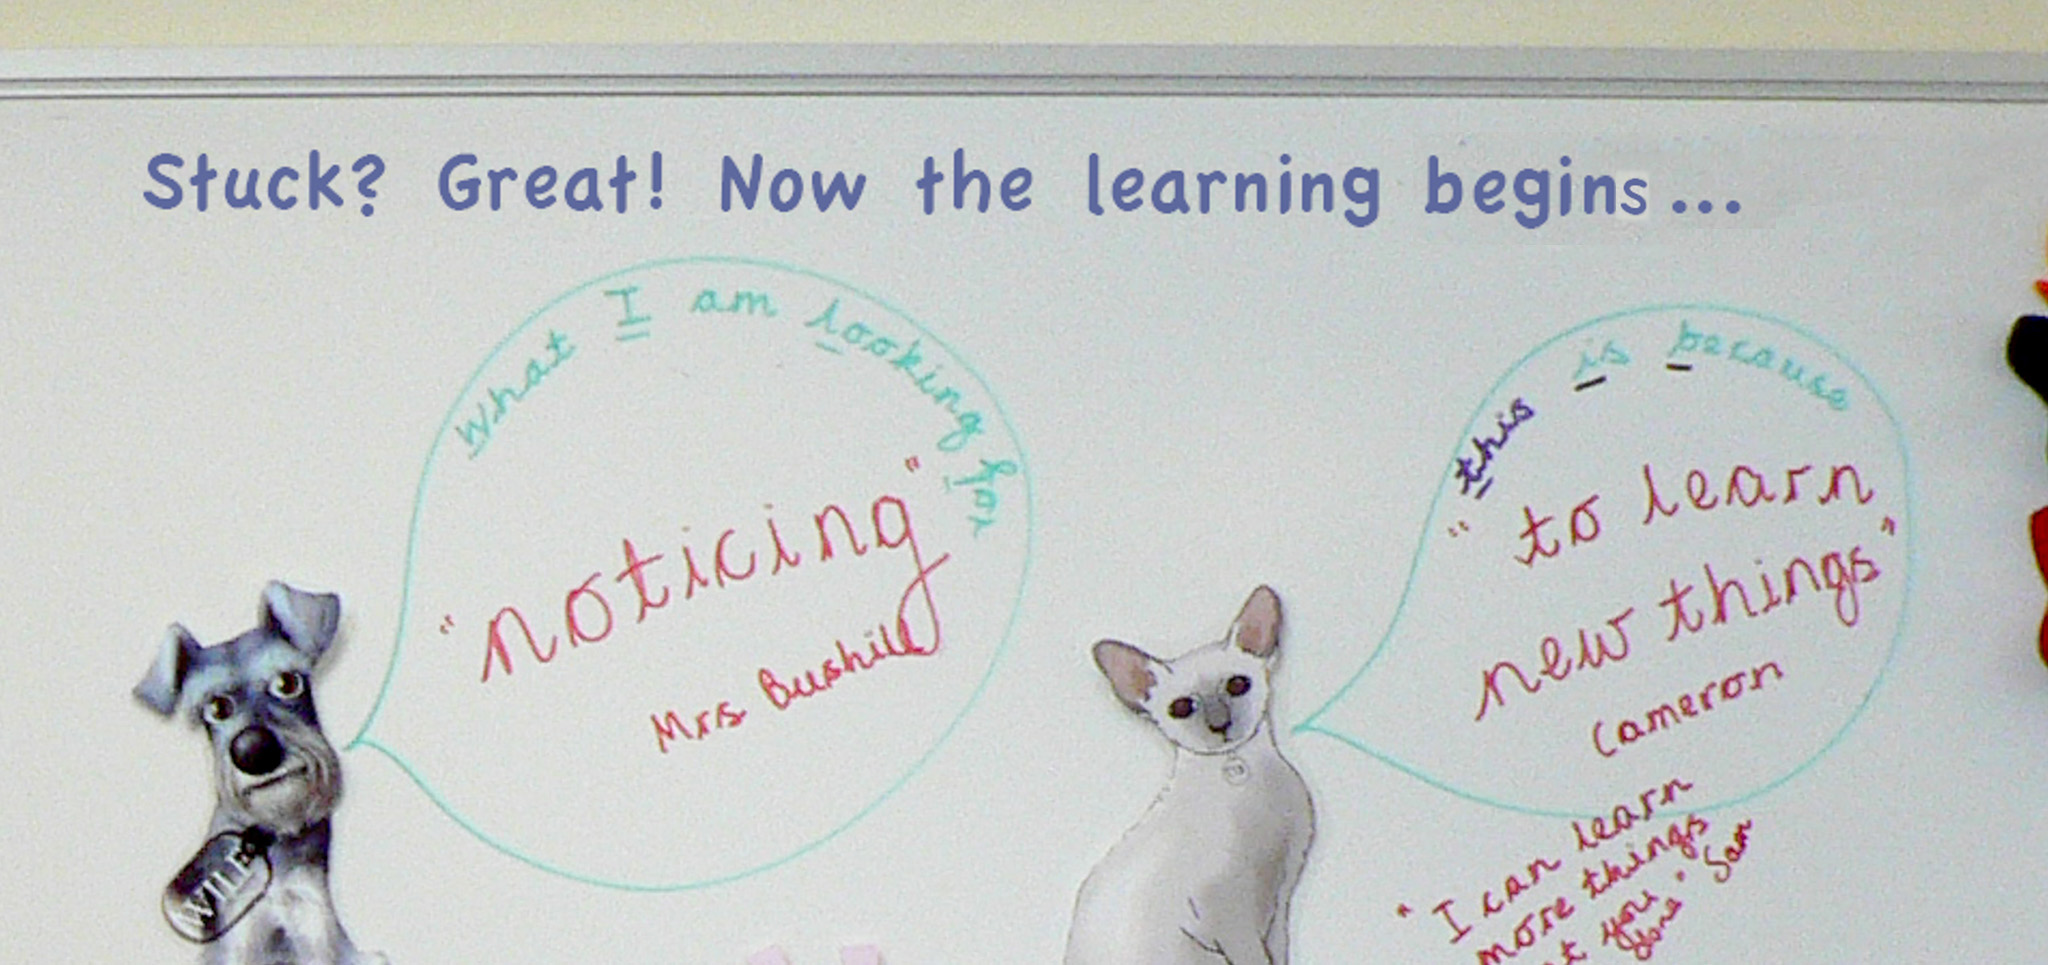 Stuck? Great! Now the learning begins...
What I am looking for
"noticing"
Mrs Bushill
WILF
this is because
"to learn
new things"
Cameron
"I can learn
more things
you" Sam